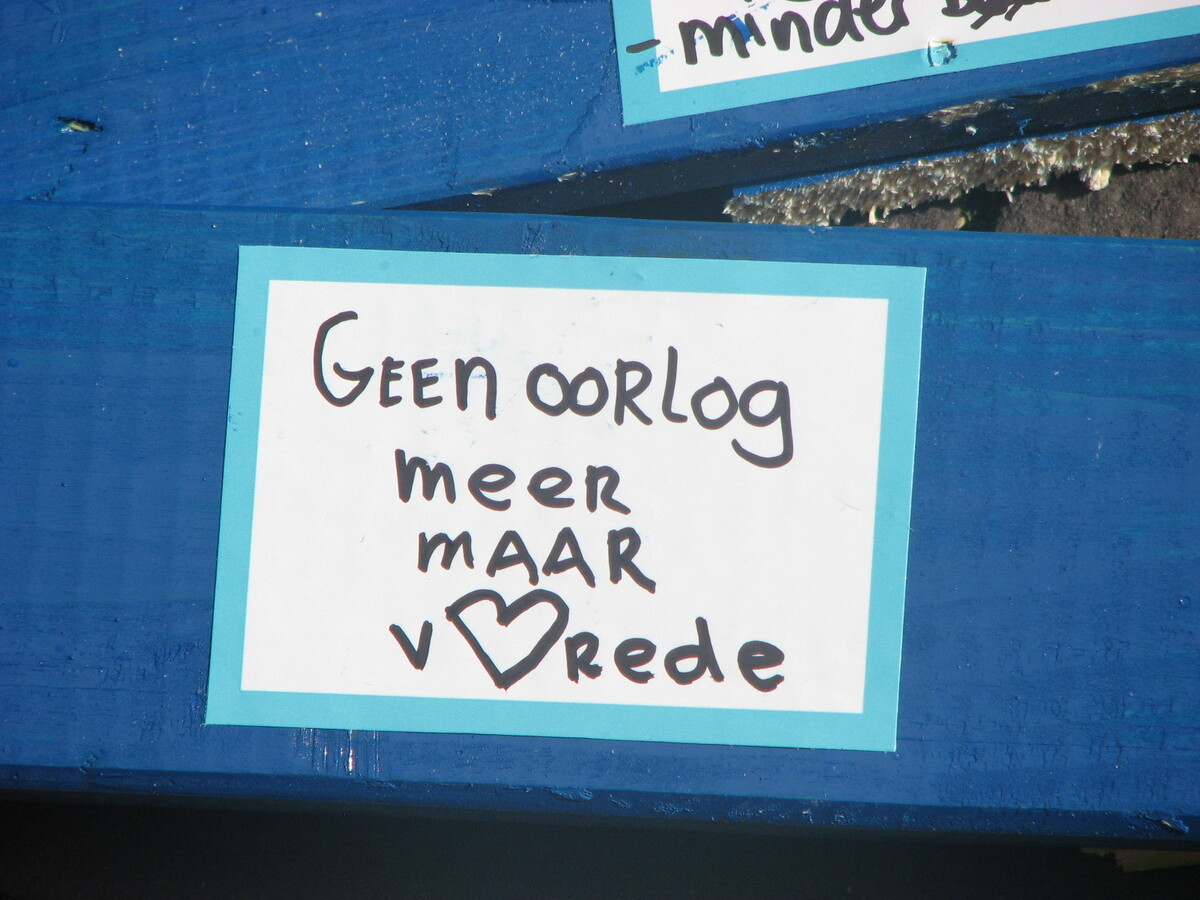 - minder
Geen oorlog
meer
maar
v♡rede